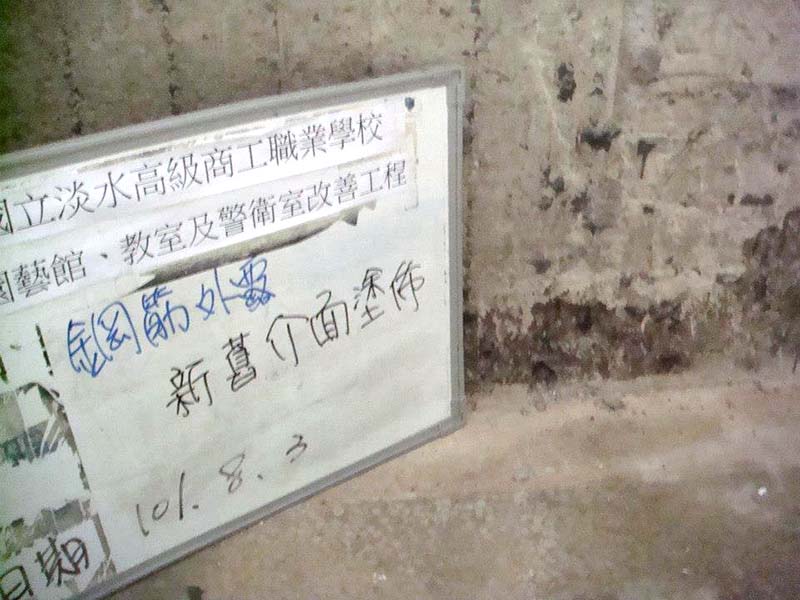 國立淡水高級商工職業學校
園藝館、教室及警衛室改善工程
鋼筋外露
新舊介面塗佈
101. 8. 3
日期